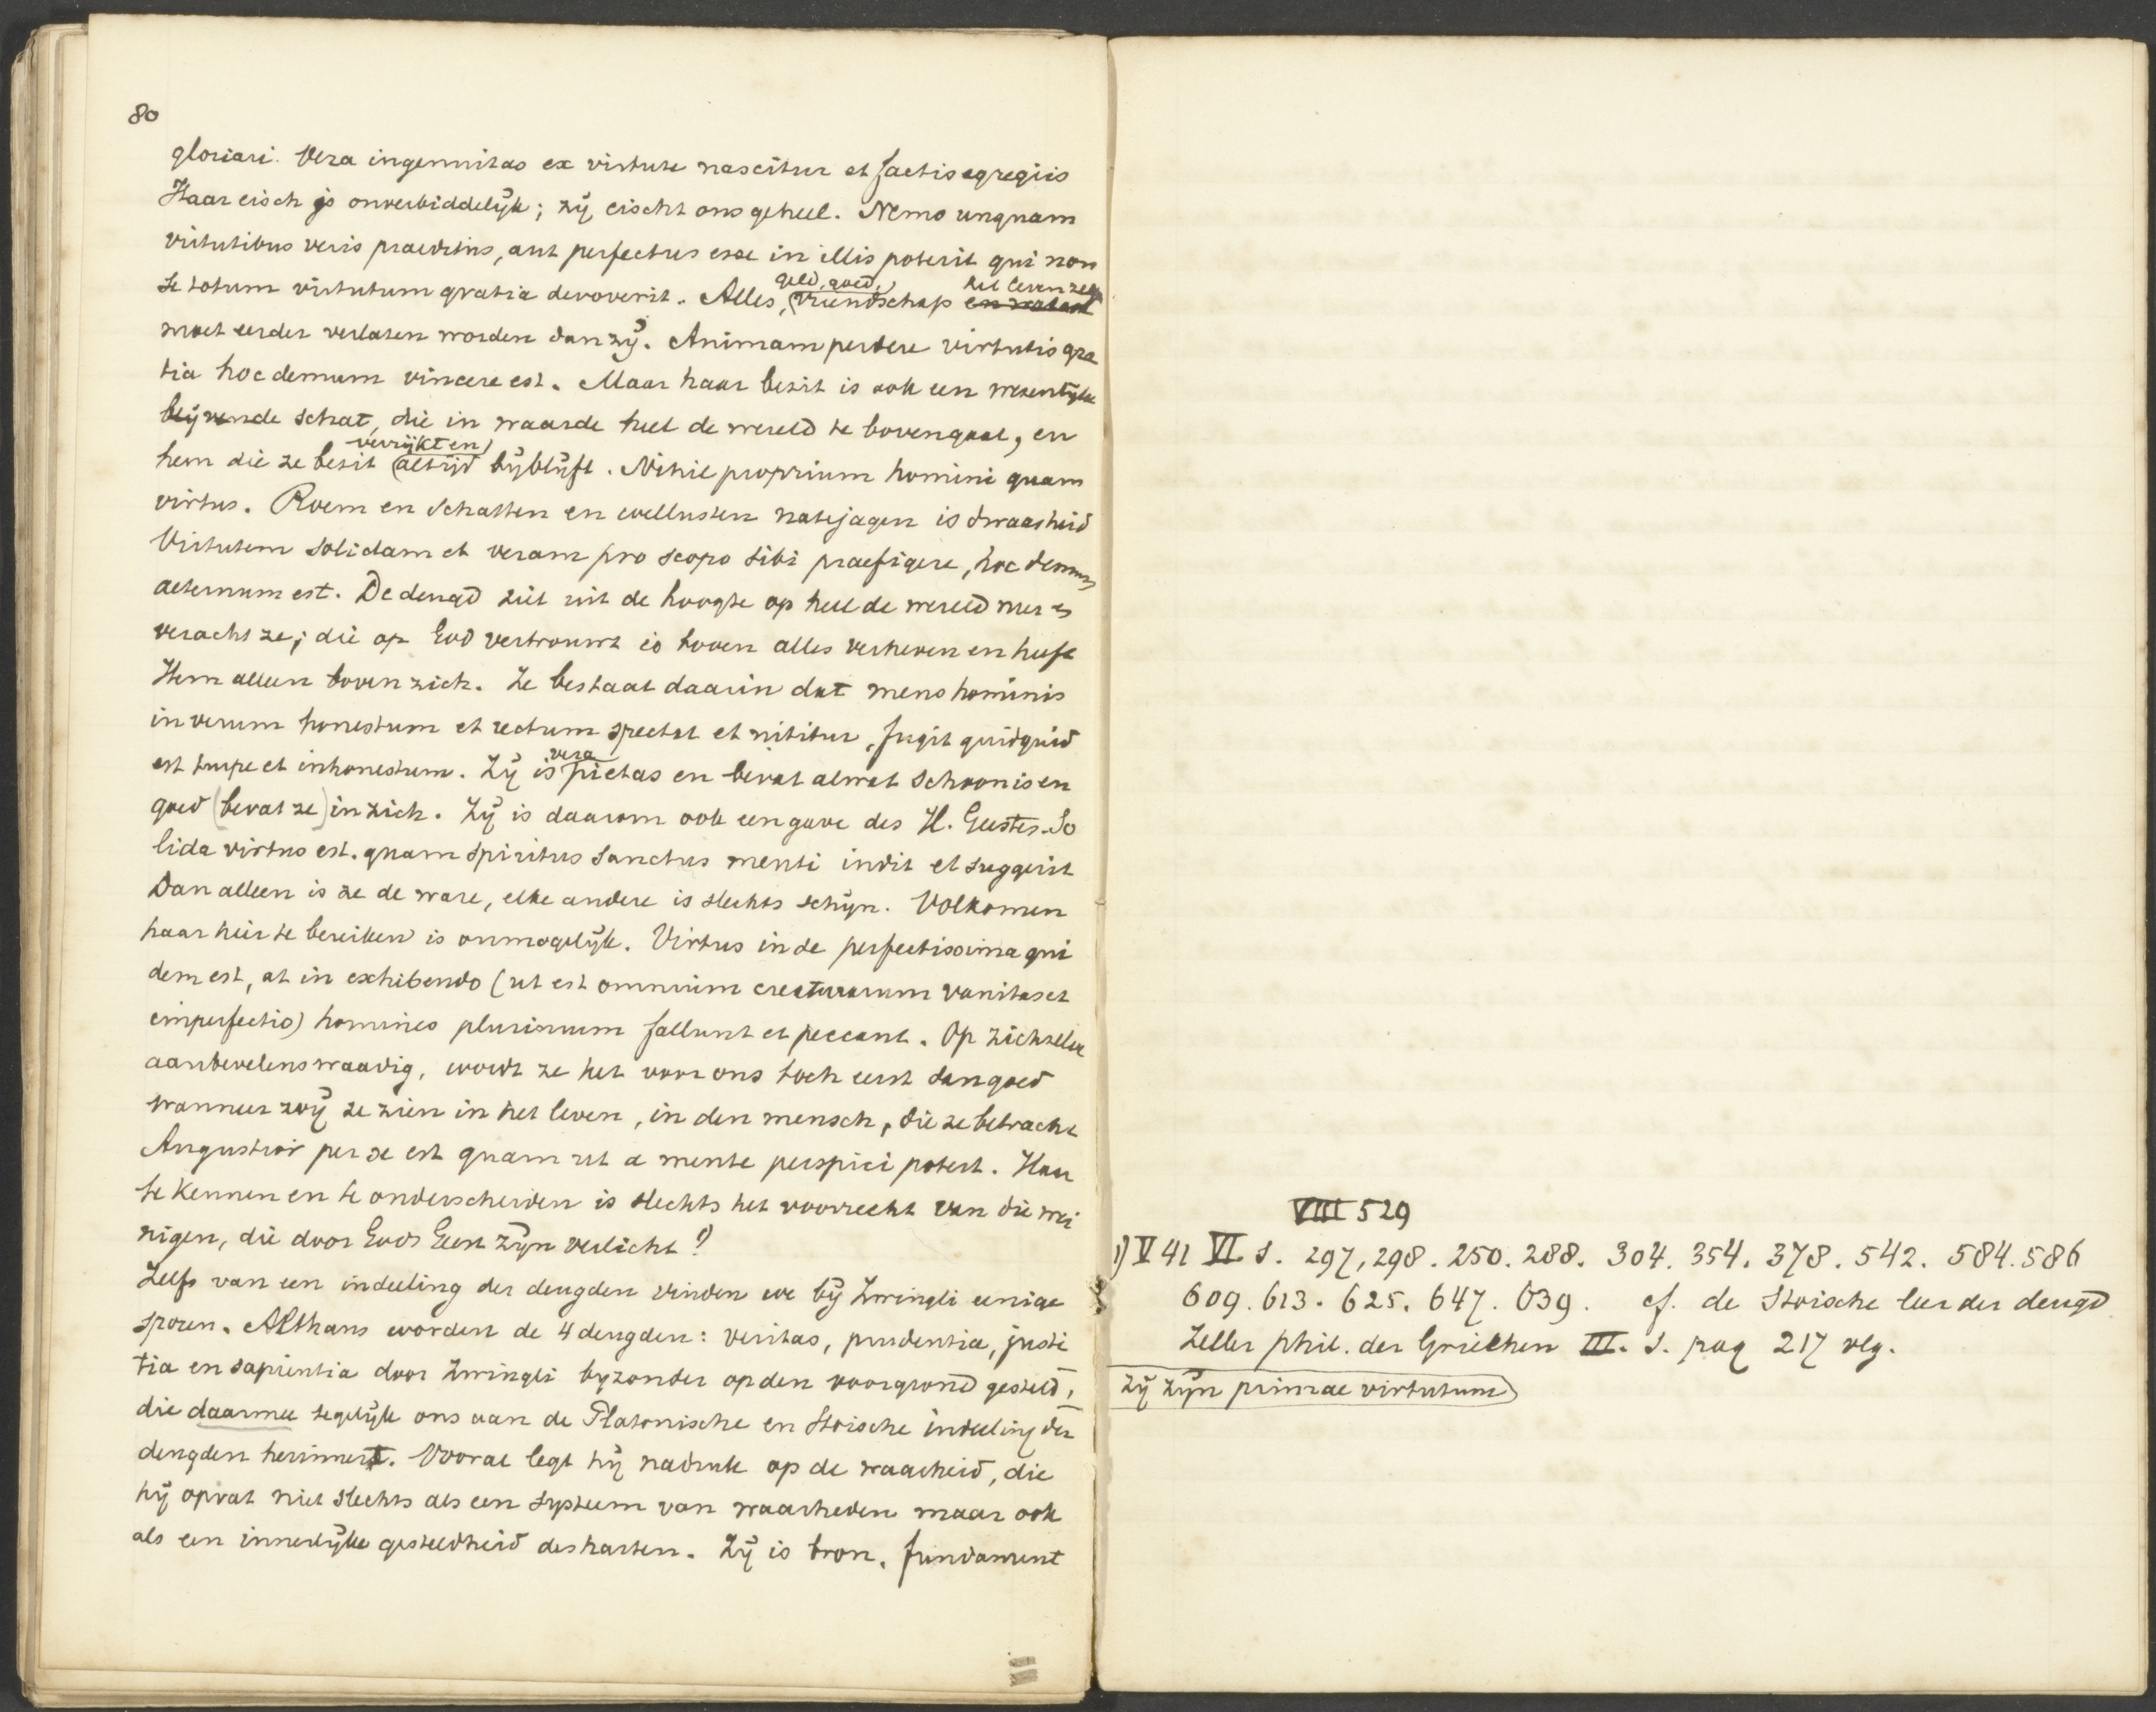 80
gloriari. Vera ingenuitas ex virtute nascitur et factis egregiis
Haar eisch is onverbiddelijk; zij eischt ons geheel. Nemo unquam
virtutibus veris praeditus, aut perfectus esse in illis poterit qui non
se totum virtutum gratia devoverit. Alles, geld, goed, vriendschap het leven zelf
moet eerder verlaten worden dan zij. Animam perdere virtutis gra
tia hoc demum vincere est. Maar haar bezit is ook een wezenlijke
blijvende schat, die in waarde heel de wereld te bovengaat, en
hem die ze bezit verrijkt en altijd bijblijft. Nihil proprium homini quam
virtus. Roem en schatten en wellusten natejagen is dwaasheid
Virtutem solidam et veram pro scopo sibi praefigere, hoc demum
aeternum est. De deugd ziet uit de hoogte op heel de wereld neer en
veracht ze; die op God vertrouwt is boven alles verheven en heeft
Hem alleen boven zich. Ze bestaat daarin dat mens hominis
in verum honestum et rectum spectat et nititur, fugit quidquid
est turpe et inhonestum. Zij is vera pietas en bevat alwat schoon is en
goed (bevat ze) in zich. Zij is daarom ook een gave des H. Geestes. So
lida virtus est. quam Spiritus Sanctus menti indit et suggerit
Dan alleen is ze de ware, elke andere is slechts schijn. Volkomen
haar hier te bereiken is onmogelijk. Virtus in se perfectissima qui
dem est, at in exhibendo (ut est omnium creaturarum vanitas et
imperfectio) homines plurimum fallunt et peccant. Op zichzelve
aanbevelenswaardig, wordt ze het voor ons toch eerst dan goed
wanneer wij ze zien in het leven, in den mensch, die ze betracht
Augustior per se est quam ut a mente perspici potest. Haar
te kennen en te onderscheiden is slechts het voorrecht van die wei
nigen, die door Gods Geest zijn verlicht 1)
Zelfs van een indeeling der deugden vinden we bij Zwingli eenige
sporen. Althans worden de 4 deugden: veritas, prudentia, justi
tia en sapientia door Zwingli byzonder op den voorgrond gesteld,
die daarmee tegelijk ons aan de Platonische en Stoische indeeling der
deugden herinnert. Vooral legt hij nadruk op de waarheid, die
hij opvat niet slechts als een systeem van waarheden maar ook
als een innerlijke gesteldheid des harten. Zij is bron, fundament
VIII 529
1) V 41 VI. s. 297, 298. 250. 288. 304. 354. 378. 542. 584. 586
609. 613. 625. 647. 639. cf. de Stoische leer der deugd
Zeller phil. der Griechen III. s. pag 217 vlg.
Zij zijn primae virtutum